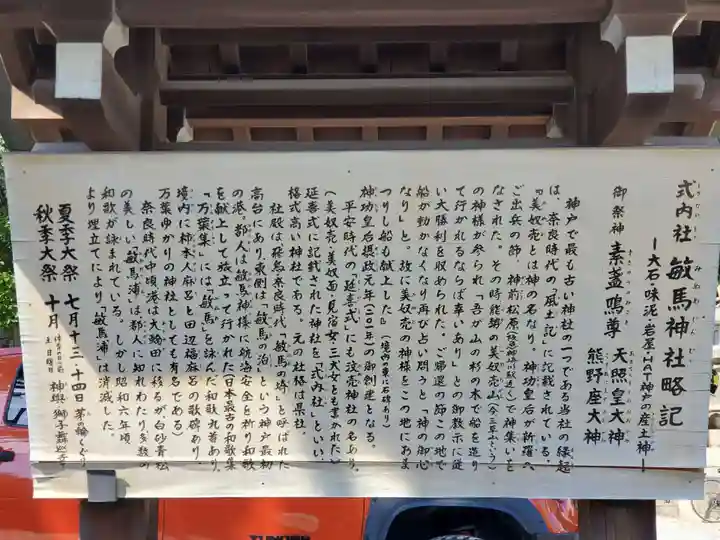 式内社 敏馬神社略記
ー大石・味泥・岩屋・HAT神戸の産土神ー
御祭神 素盞嗚尊 天照皇大神
熊野座大神
神戸で最も古い神社の一つである当社の縁起
は、奈良時代の「風土記」に記載されている。
「美奴売とは神の名なり、神功皇后が新羅へ
ご出兵の節、神前松原で神集いを
なされた。その時能勢の美奴売山(今三草山という)
の神様が参られ「吾が山の杉の木で船を造り
て行かれるならば幸いあり」との御教示に従
い大勝利を収められた。ご帰還の節この地で
船が動かなくなり再び占い問うと「神の御心
なり」と。故に美奴売の神様をこの地におま
つりし船も献上した」(境内の東に石碑あり)
神功皇后摂政元年(二〇一年)の御創建となる。
平安時代の「延喜式」にも汶売神社の名あり、
(美奴売・美奴面・見宿女・三犬女とも書かれた)
延喜式に記載された神社を「式内社」といい、
格式高い神社である。元の社格は県社。
社殿は飛鳥奈良時代、「敏馬の崎」と呼ばれた
高台にあり、東側は「敏馬の泊」という神戸最初
の港。都人は敏馬神様に航海安全を祈り和歌
を献上して旅立って行かれた(日本最古の和歌集
「万葉集」には「敏馬」を詠んだ和歌九首あり、
境内に柿本人麻呂と田辺福麻呂の歌碑あり、
万葉ゆかりの神社としても有名である)
奈良時代中頃港は大輪田に移るが白砂青松
の美しい「敏馬浦」は都人に知れわたり多数の
和歌が詠まれている。しかし昭和六年頃
より埋立てにより「敏馬浦」は消滅した。
夏季大祭 七月十三・十四日 茅の輪くぐり
秋季大祭 十月 土・日曜日 神輿・獅子舞